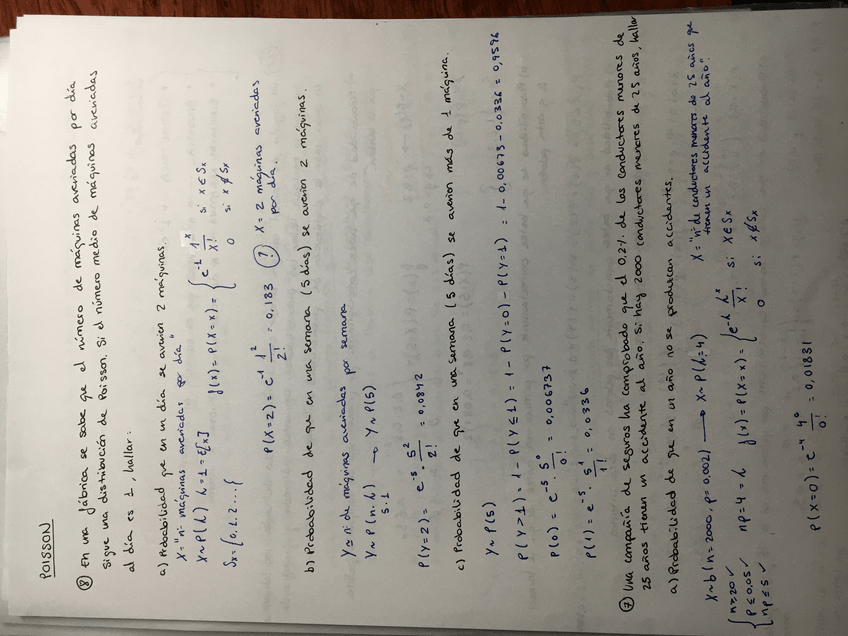 POISSON
⑧ En una fábrica se sabe que el número de máquinas averiadas por día
sigue una distribución de Poisson. Si el número medio de máquinas averiadas
al día es 1, hallar:
a) Probabilidad que en un día se averíen 2 máquinas.
X = "nº máquinas averiadas por día"
X ~ P(λ) λ = 1 = E[x] f(x) = P(X = x) = { e^-1 1^x/x! si x ∈ Sx
Sx = {0, 1, 2 ... { 0 si x ∉ Sx
P(X=2) = e^-1 1^2/2! = 0,183 (?) X = 2 máquinas averiadas
por día.
b) Probabilidad de que en una semana (5 días) se averien 2 máquinas.
Y = nº de máquinas averiadas por semana
Y ~ P(n·λ) → Y ~ P(5)
5·1
P(Y=2) = e^-5 · 5^2/2! = 0,0842
c) Probabilidad de que en una semana (5 días) se averien más de 1 máquina.
Y ~ P(5)
P(Y>1) = 1 - P(Y≤1) = 1 - P(Y=0) - P(Y=1) = 1 - 0,00673 - 0,0336 = 0,9596
P(0) = e^-5 · 5^0/0! = 0,006737
P(1) = e^-5 · 5^1/1! = 0,0336
⑦ Una compañía de seguros ha comprobado que el 0,2% de los conductores menores de
25 años tienen un accidente al año. Si hay 2000 conductores menores de 25 años, hallar
a) Probabilidad de que en un año no se produzcan accidentes.
X ~ b(n = 2000, p = 0,002) → X ~ P(λ=4) X = "nº de conductores menores de 25 años que
tienen un accidente al año".
{ n ≥ 20 ✓
p ≤ 0,05 ✓ np = 4 = λ f(x) = P(X = x) = { e^-λ λ^x/x! si x ∈ Sx
np ≤ 5 ✓ 0 si x ∉ Sx
P(X=0) = e^-4 4^0/0! = 0,01831